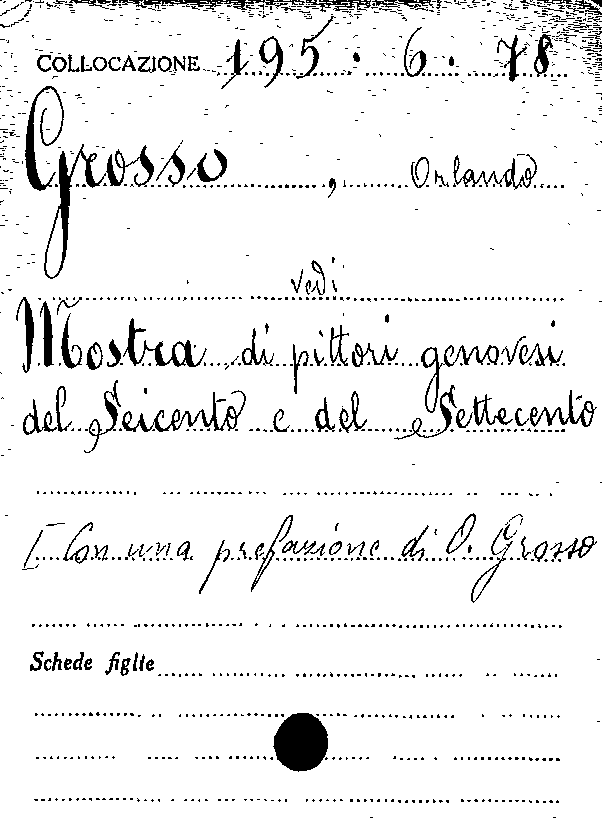 COLLOCAZIONE 195.6.78
Grosso, Orlando
vedi
Mostra di pittori genovesi
del Seicento e del Settecento
[Con una prefazione di O. Grosso
Schede figlie